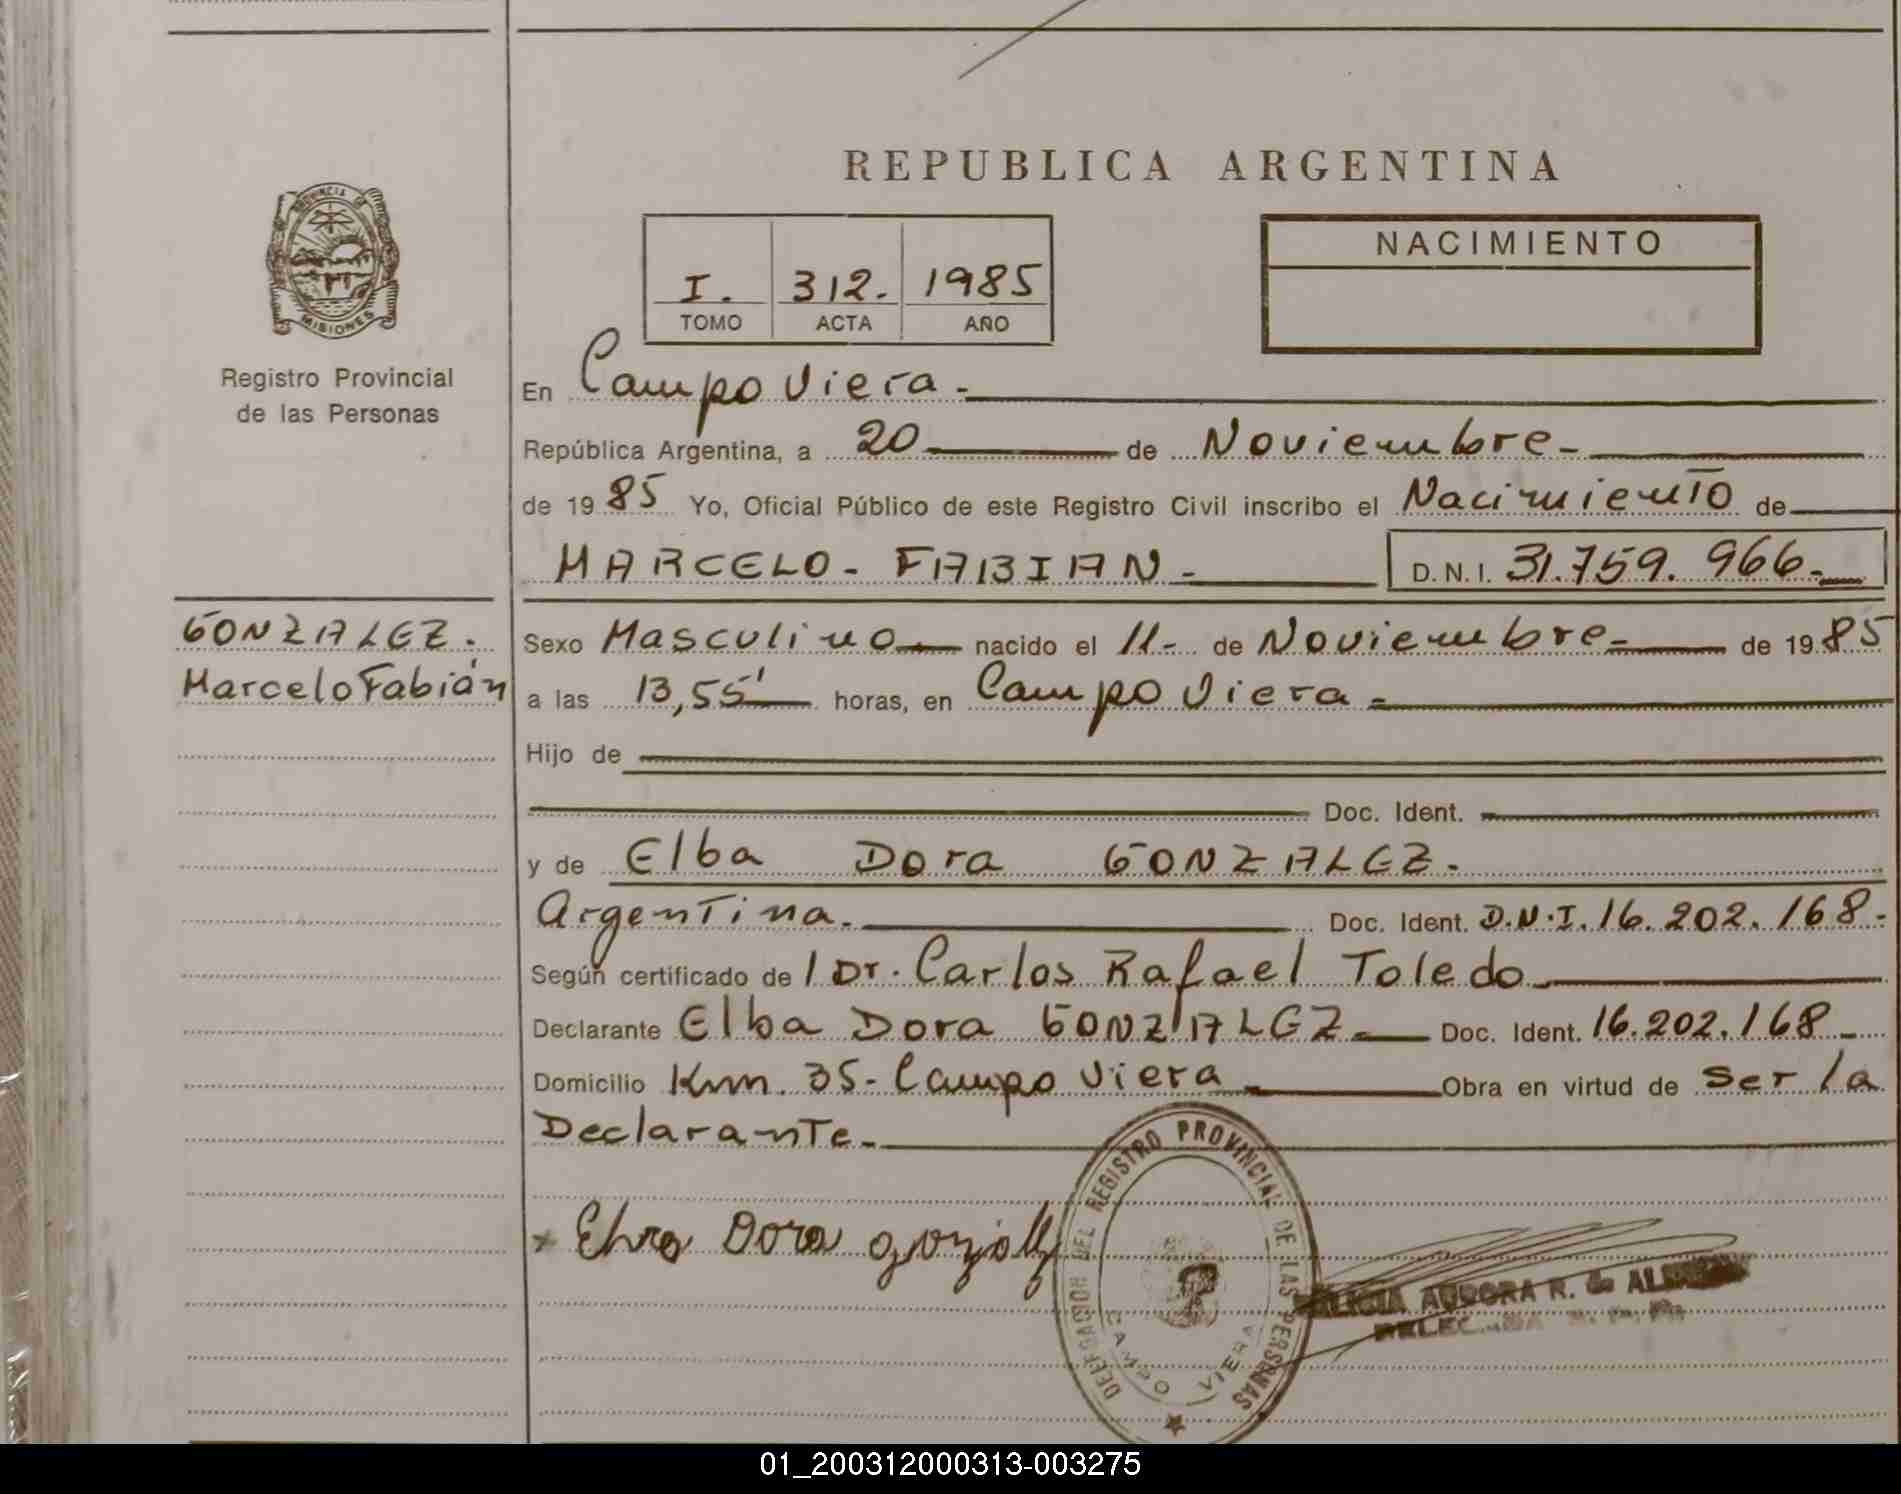 REPUBLICA ARGENTINA
PROVINCIA DE
MISIONES
Registro Provincial
de las Personas
I. 312. 1985
TOMO ACTA AÑO
NACIMIENTO
En Campo Viera.
República Argentina, a 20 de Noviembre
de 19 85 Yo, Oficial Público de este Registro Civil inscribo el Nacimiento de
MARCELO - FABIAN - D.N.I. 31.759.966.
GONZALEZ.
Marcelo Fabián
Sexo Masculino nacido el 11- de Noviembre- de 19 85
a las 13,55' horas, en Campo Viera
Hijo de
Doc. Ident.
y de Elba Dora GONZALEZ.
Argentina. Doc. Ident. D.N.I. 16.202.168.
Según certificado de l Dr. Carlos Rafael Toledo
Declarante Elba Dora GONZALEZ Doc. Ident. 16.202.168
Domicilio Km. 35- Campo Viera Obra en virtud de Ser la
Declarante.
Dora
DELEGACION DEL REGISTRO PROVINCIAL DE LAS PERSONAS
CAMPO VIERA
ALICIA AURORA R. de
01_200312000313-003275